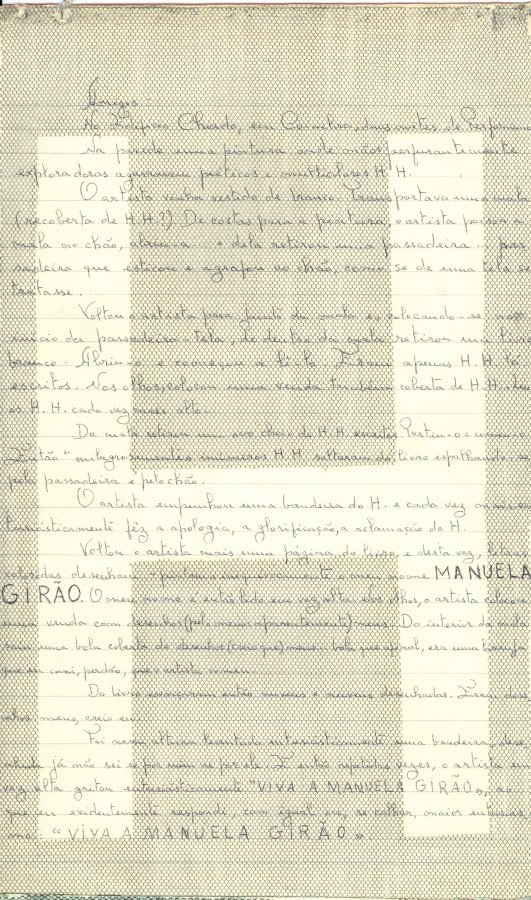 Amigos -
No Edifício Chiado, em Coimbra, duas noites de Performan
Na parede uma pintura onde mãos perfurantemente
exploradoras agarravam poéticos e multicolores H.H.
O artista vinha vestido de branco. Transportava uma mala
(recoberta de H.H.?) De costas para a pintura, o artista poisou a
mala ao chão, abriu-a e dela retirou uma passadeira. pas
sadeira que esticou e agrafou ao chão, como se de uma tela se
tratasse.
Voltou o artista para junto da mala e, colocando-se no
início da passadeira-tela, de dentro da mala retirou um livro
branco. Abriu-o e começou a lê-lo. Eram apenas H.H. lá
escritos. Nos olhos, colocou uma venda também coberta de H.H.
os H.H. cada vez mais alto.
Da mala retirou um ovo cheio de H.H. escritos. Partiu-o e comeu-o.
Então "milagrosamente" inúmeros H.H. saltaram do livro espalhando-se
pela passadeira e pelo chão.
O artista empunhou uma bandeira do H. e cada vez mais en
tusiásticamente fêz a apologia, a glorificação, a aclamação do H.
Voltou o artista mais uma página do livro, e desta vez, letras
coloridas desenham - pintam inequivocamente o meu nome MANUELA
GIRÃO. O meu nome é então lido em voz alta: nos olhos, o artista colocou
uma venda com desenhos (pelo menos aparentemente) meus. Do interior da mala
saiu uma bola coberta de desenhos (creio que) meus: bola que afinal, era uma laranja
que eu comi, perdão, que o artista comeu.
Do livro esvoaçaram então nuvens e nuvens desenhadas. Eram dese
nhos meus, creio eu.
Foi nessa altura levantada entusiásticamente uma bandeira, dese
nhada já não sei se por mim se por ele. E então repetidas vezes, o artista em
voz alta gritou entusiásticamente "VIVA A MANUELA GIRÃO", ao
que eu evidentemente respondi, com igual ou, se calhar, maior entusias
mo: "VIVA A MANUELA GIRÃO".